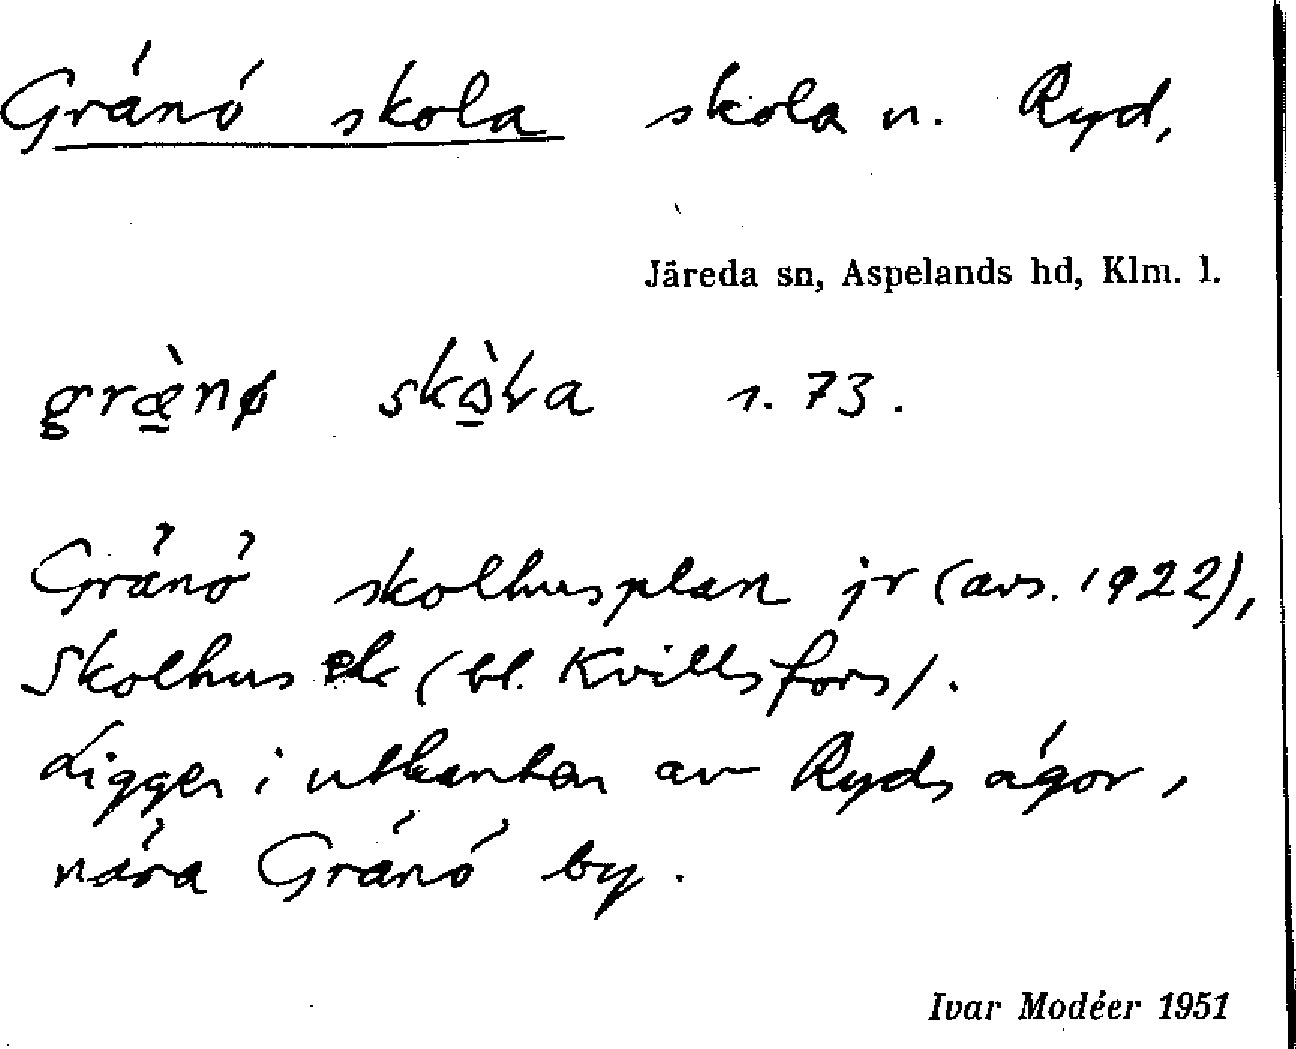 Gränö skola skola n. Ryd,
Järeda sn, Aspelands hd, Klm. l.
græ̀nø skɔ̀ɫa 1. 73.
Gränö skolhusplan jr (avs. 1922),
Skolhus ek (bl. Kvillsfors).
Ligger i utkanten av Ryds ägor,
nära Gränö by.
Ivar Modéer 1951